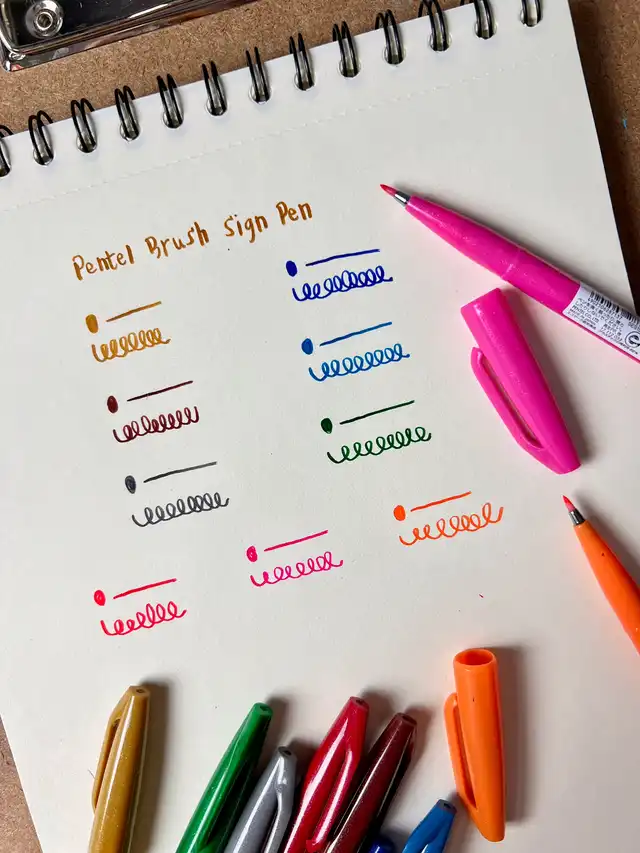 Pentel Brush Sign Pen